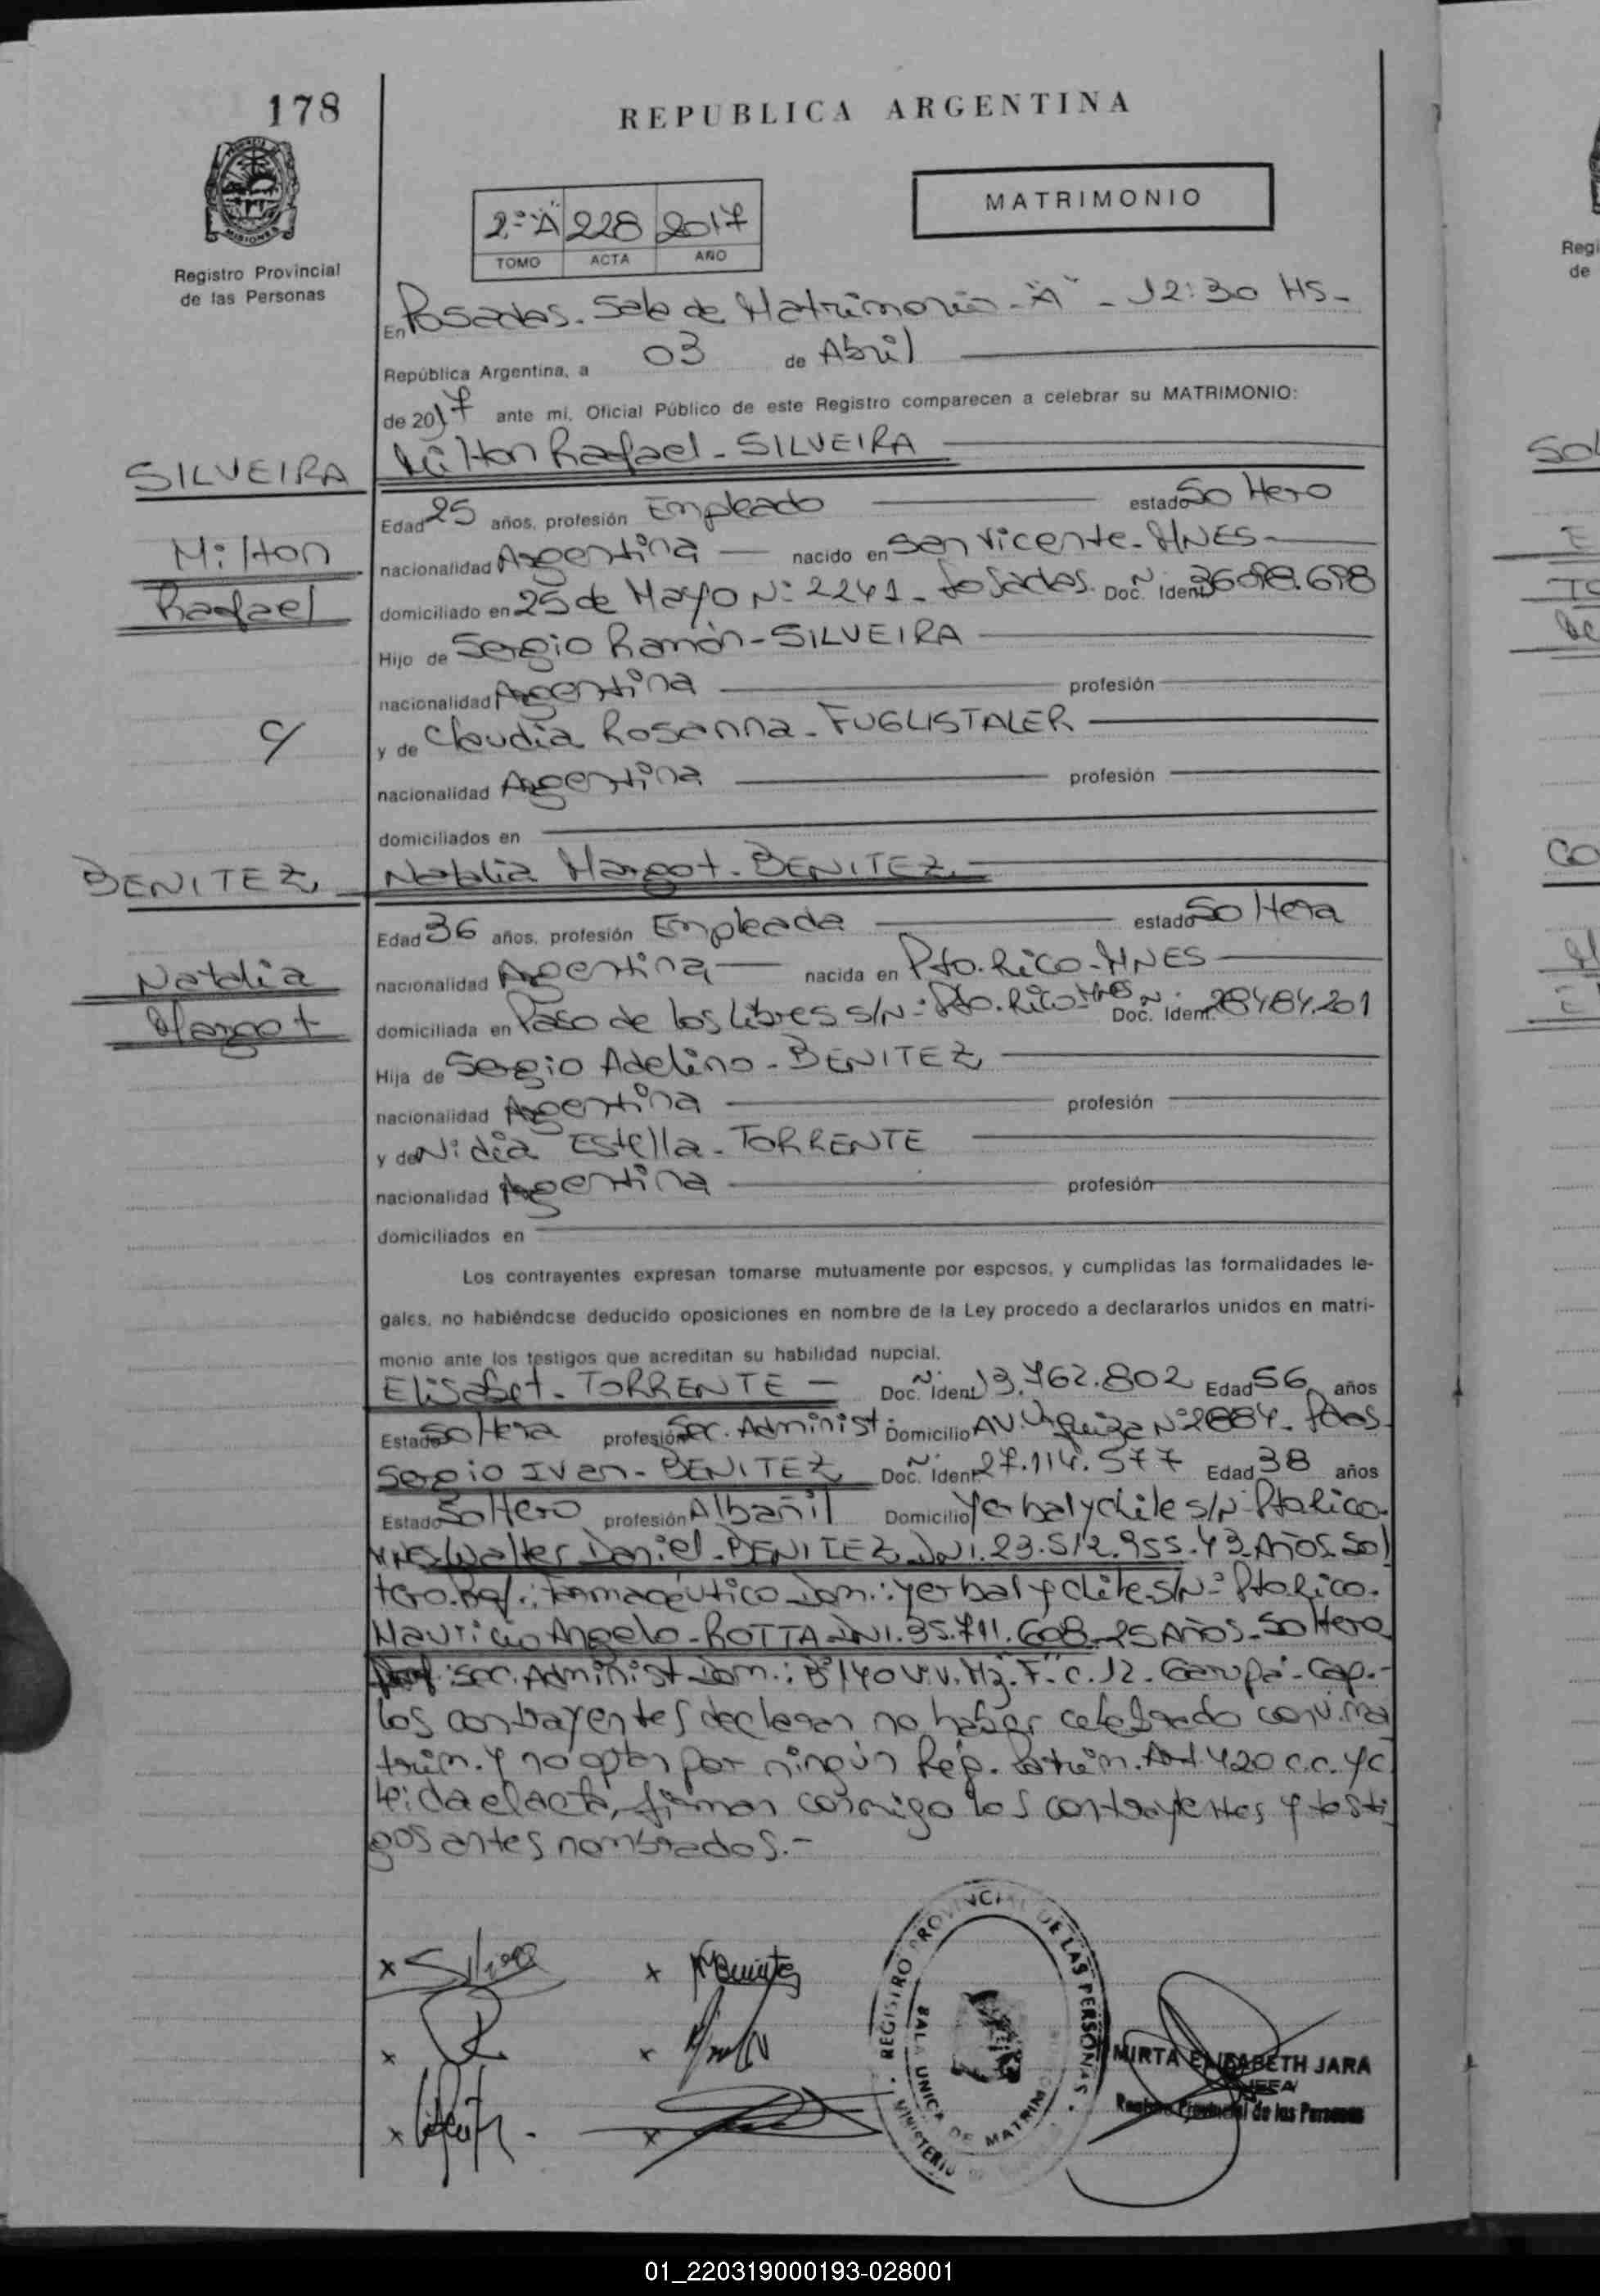 178
REPUBLICA ARGENTINA
MATRIMONIO
2º "A" 228 2017
TOMO ACTA AÑO
Registro Provincial
de las Personas
En Posadas. Sala de Matrimonio - "A" - 12:30 HS-
República Argentina, a 03 de Abril
de 2017 ante mi, Oficial Público de este Registro comparecen a celebrar su MATRIMONIO:
SILVEIRA
Milton
Rafael
c/
BENITEZ
Natalia
Margot
Milton Rafael - SILVEIRA
Edad 25 años, profesión Empleado estado Soltero
nacionalidad Argentina nacido en San Vicente - MNES-
domiciliado en 25 de Mayo Nº 2241 - Posadas. Doc. Ident. Nº 36098.698
Hijo de Sergio Ramón - SILVEIRA
nacionalidad Argentina profesión
y de Claudia Rosanna - FUGLISTALER
nacionalidad Argentina profesión
domiciliados en
Natalia Margot - BENITEZ
Edad 36 años, profesión Empleada estado Soltera
nacionalidad Argentina nacida en Pto. Rico - MNES
domiciliada en Paso de los Libres s/Nº Pto. Rico MNES Doc. Ident. Nº 28484.201
Hija de Sergio Adelino - BENITEZ
nacionalidad Argentina profesión
y de Nidia Estella - TORRENTE
nacionalidad Argentina profesión
domiciliados en
Los contrayentes expresan tomarse mutuamente por esposos, y cumplidas las formalidades le-
gales, no habiéndose deducido oposiciones en nombre de la Ley procedo a declararlos unidos en matri-
monio ante los testigos que acreditan su habilidad nupcial.
Elisabet - TORRENTE - Doc. Ident. Nº 13.762.802 Edad 56 años
Estado Soltera profesión Sec. Administ. Domicilio AV. Urquiza Nº 2884 - Pdas.
Sergio Ivan - BENITEZ Doc. Ident. Nº 27.114.577 Edad 38 años
Estado Soltero profesión Albañil Domicilio Yerbal y chile s/Nº Pto Rico.
MNES. Walter Daniel - BENITEZ DNI. 23.512.955 - 43 Años. Sol
tero. Prof.: Farmacéutico Dom.: yerbal y chile s/Nº Pto. Rico.
Mauricio Angelo - ROTTA DNI. 35.711.608 - 25 Años - Soltero
Prof: Sec. Administ Dom.: Bº 140 Viv. Mz. "F" C. 12 - Garupá - Cap.-
los contrayentes declaran no haber celebrado conv. ma
trim. y no optan por ningún Reg. Patrim. Art. 420 C.C. y C
leida el acta, firman conmigo los contrayentes y testi
gos antes nombrados.-
REGISTRO PROVINCIAL DE LAS PERSONAS
SALA UNICA DE MATRIMONIO
MINISTERIO
MIRTA ELIZABETH JARA
JEFA
Registro Provincial de las Personas
01_220319000193-028001